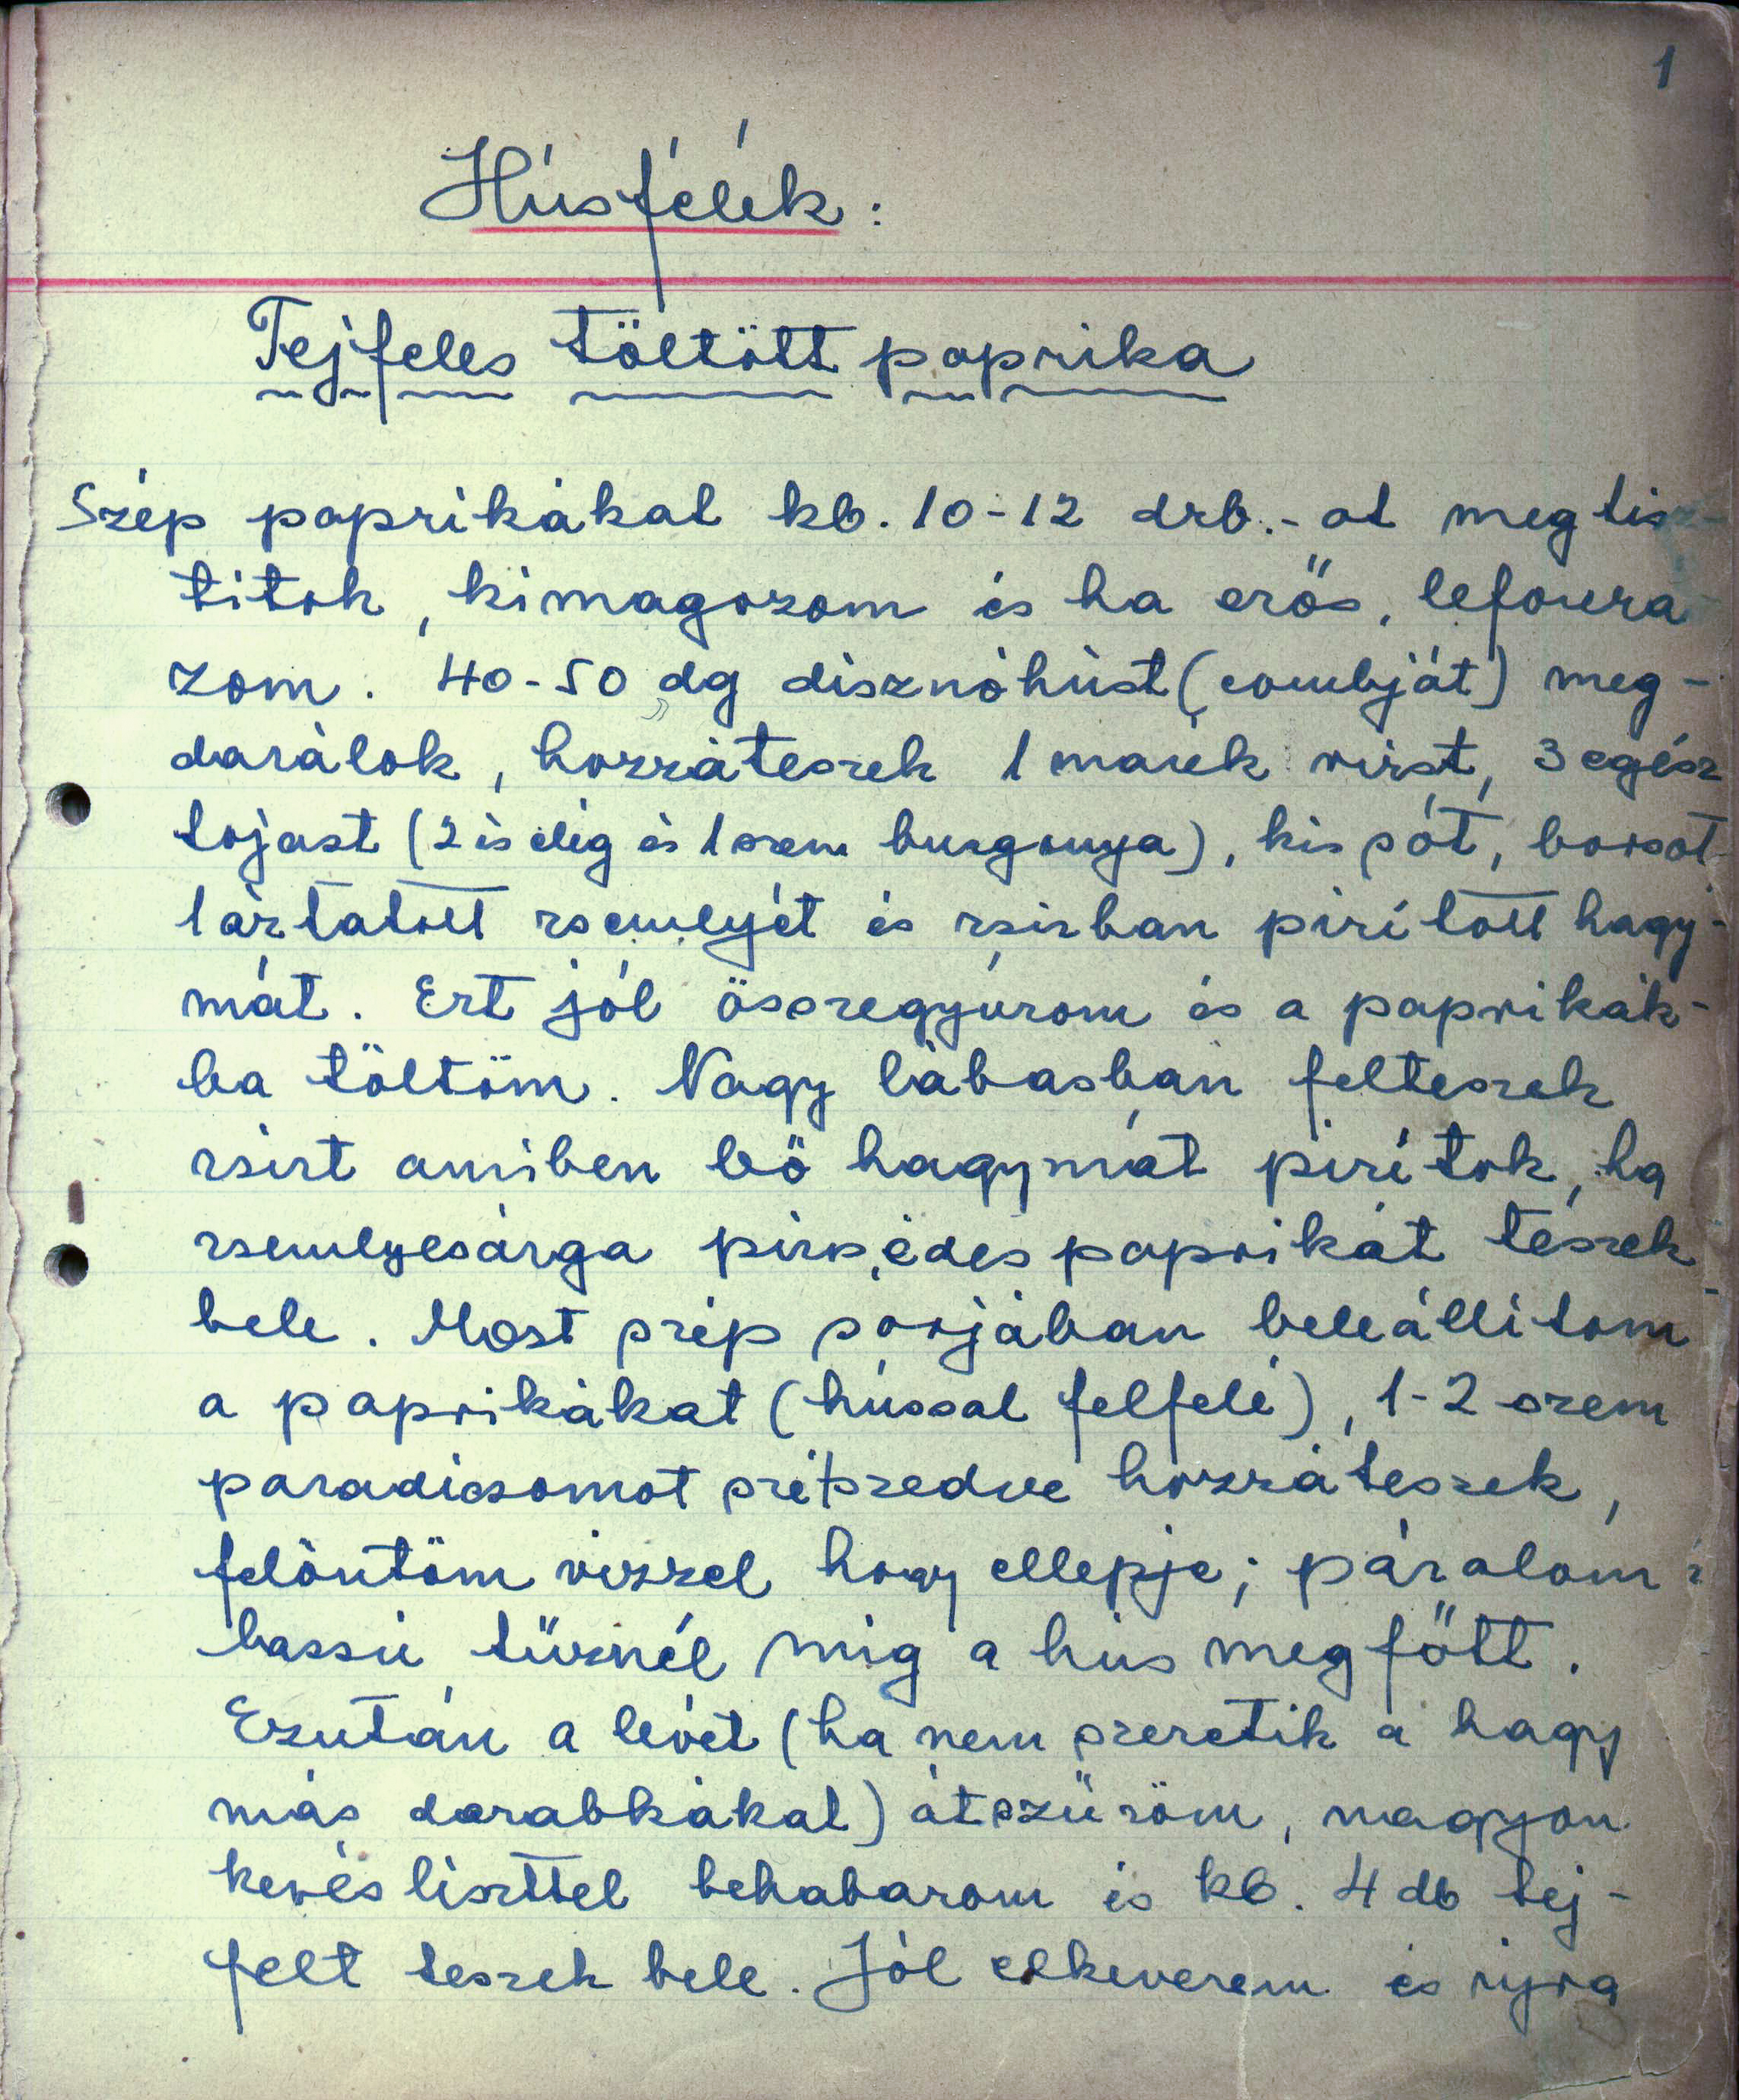 1
Húsfélék:
Tejfeles töltött paprika
Szép paprikákat kb. 10-12 drb.-ot megtisz-
titok, kimagozom és ha erős, leforrá-
zom. 40-50 dg disznóhúst (combját) meg-
darálok, hozzáteszek 1 marék rizst, 3 egész
tojast (2 is elég és 1 szem burgonya), kis sót, borsot
1 áztatott zsemlyét és zsirban pirított hagy-
mát. Ezt jól összegyúrom és a paprikák-
ba töltöm. Nagy lábasban felteszek
zsirt amiben bő hagymát pirítok, ha
zsemlyesárga piros, édes paprikát teszek
bele. Most szép sorjában beleállitom
a paprikákat (hússal felfelé), 1-2 szem
paradicsomot szétszedve hozzáteszek,
felöntöm vizzel hogy ellepje; párolom
lassú tűznél mig a hús megfőtt.
Ezután a levét (ha nem szeretik a hagy
más darabkákat) átszűröm, nagyon
kevés liszttel behabarom és kb. 4 db tej-
felt teszek bele. Jól elkeverem és újra